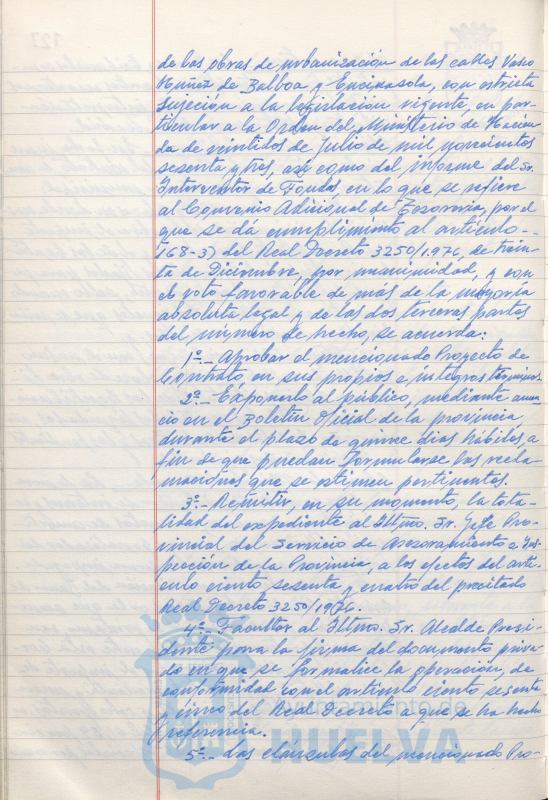 de las obras de urbanización de las calles Vasco
Núñez de Balboa y Encinasola, con estricta
sujeción a la legislación vigente, en par-
ticular a la Orden del Ministerio de Hacien
da de veintidos de julio de mil novecientos
sesenta y tres, así como del informe del Sr.
Interventor de Fondos en lo que se refiere
al Convenio Adicional de Tesorería, por el
que se da cumplimiento al artículo--
168-3) del Real Decreto 3250/1.976, de trein-
ta de Diciembre, por unanimidad, y con
el voto favorable de más de la mayoría
absoluta legal y de las dos terceras partes
del número de hecho, se acuerda:
1º.- Aprobar el mencionado Proyecto de
Contrato, en sus propios e íntegros términos.
2º.- Exponerlo al público, mediante anun
cio en el Boletín Oficial de la provincia,
durante el plazo de quince días hábiles, a
fin de que puedan formularse las recla-
maciones que se estimen pertinentes.
3º.- Remitir, en su momento, la tota-
lidad del expediente al Iltmo. Sr. Jefe Pro-
vincial del Servicio de Asesoramiento e Ins-
pección de la Provincia, a los efectos del artí-
culo ciento sesenta y cuatro del precitado
Real Decreto 3250/1976.
4º.- Facultar al Iltmo. Sr. Alcalde Presi-
dente para la firma del documento priva-
do en que se formalice la operación, de
conformidad con el artículo ciento sesenta
y cinco del Real Decreto a que se ha hecho
referencia.
5º.- Las cláusulas del mencionado Pro-
Ayuntamiento de
HUELVA